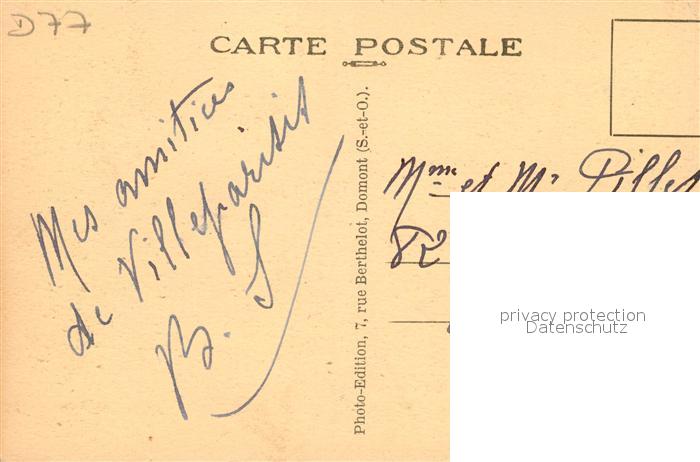 D77
CARTE POSTALE
Mes amitiés
de Villeparisis
B. S
Photo-Edition, 7, rue Berthelot, Domont (S.-et-O.).
Mme et Mr Pillet
82
privacy protection
Datenschutz